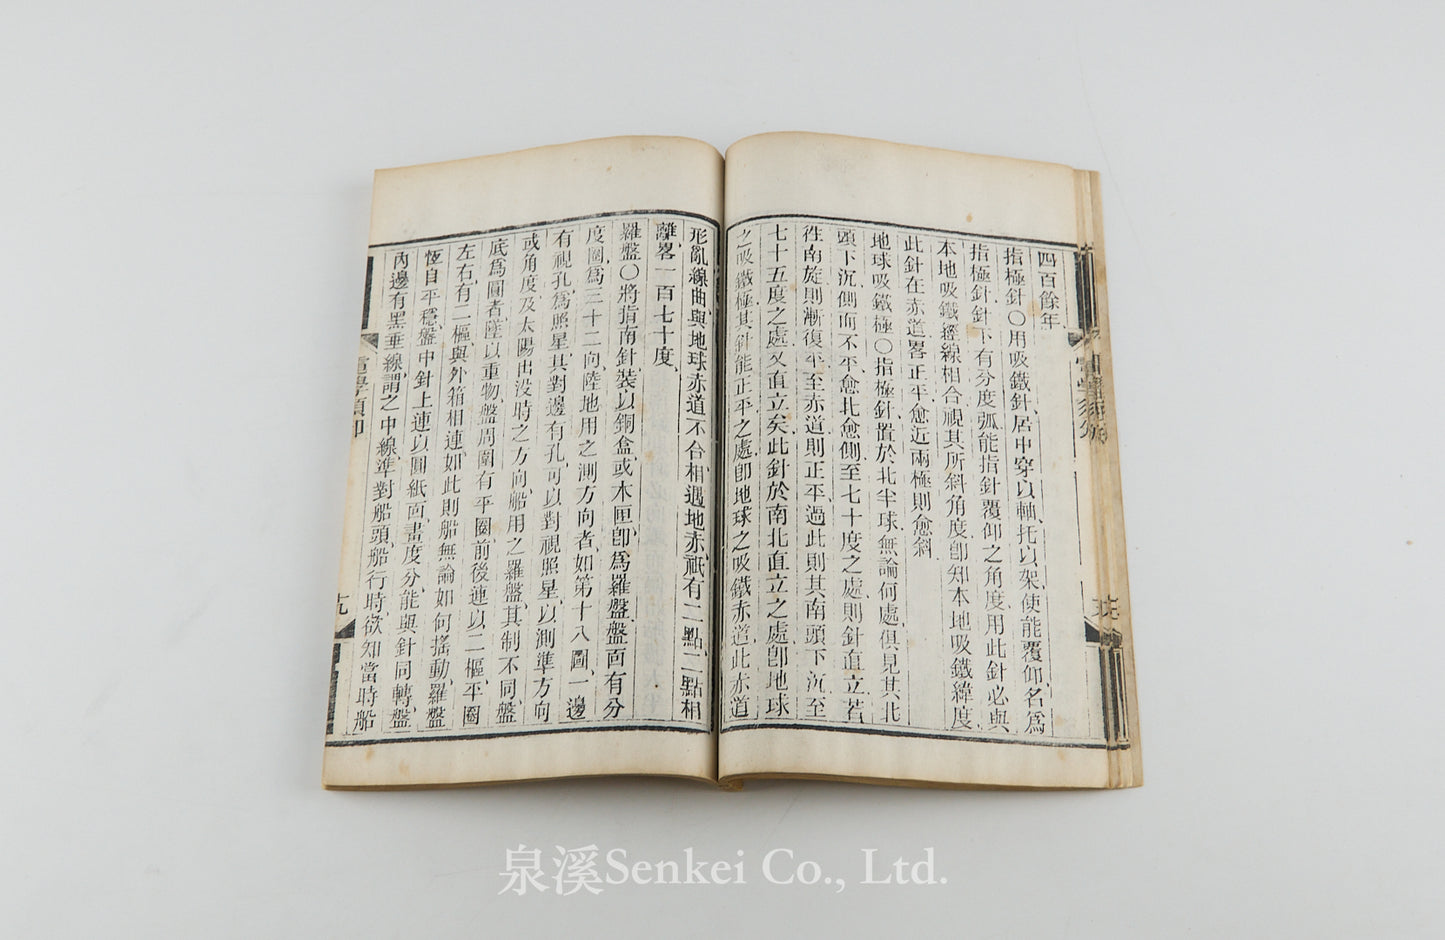 四百餘年
指極針○用吸鐵針居中穿以軸托以架使能覆仰名爲
指極針針下有分度弧能指針覆仰之角度用此針必與
本地吸鐵經線相合視其所斜角度卽知本地吸鐵緯度
此針在赤道畧正平愈近兩極則愈斜
地球吸鐵極○指極針置於北半球無論何處俱見其北
頭下沉側而不平愈北愈側至七十度之處則針直立若
徃南旋則漸復平至赤道則正平過此則其南頭下沉至
七十五度之處又直立矣此針於南北直立之處卽地球
之吸鐵極其針能正平之處卽地球之吸鐵赤道此赤道
形亂線曲與地球赤道不合相遇地赤祇有二點二點相
離畧一百七十度
羅盤○將指南針裝以銅盒或木匣卽爲羅盤盤面有分
度圈爲三十二向陸地用之測方向者如第十八圖一邊
有視孔爲照星其對邊有孔可以對視照星以測準方向
或角度及太陽出没時之方向船用之羅盤其制不同盤
底爲圓者墜以重物盤周圍有平圈前後連以二樞平圈
左右有二樞與外箱相連如此則船無論如何搖動羅盤
恆自平穩盤中針上連以圓紙面畫度分能與針同轉盤
內邊有黑垂線謂之中線準對船頭船行時欲知當時船
電學須知
泉溪Senkei Co., Ltd.